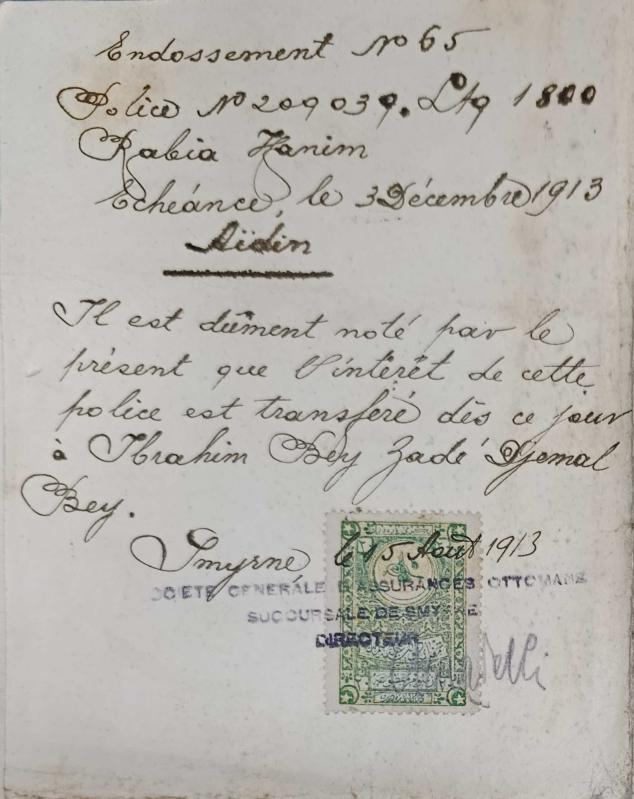 Endossement No 65
Police No 209039. Ltq 1800
Rabia Hanim
Echeánce, le 3 Décembre 1913
Aïdin
Il est dûment noté par le
présent que l'intérêt de cette
police est transféré dès ce jour
à Ibrahim Bey Zadé Djemal
Bey.
Smyrne, le 15 Août 1913
SOCIETE GENERALE D'ASSURANCES OTTOMANE
SUCCURSALE DE SMYRNE
DIRECTEUR